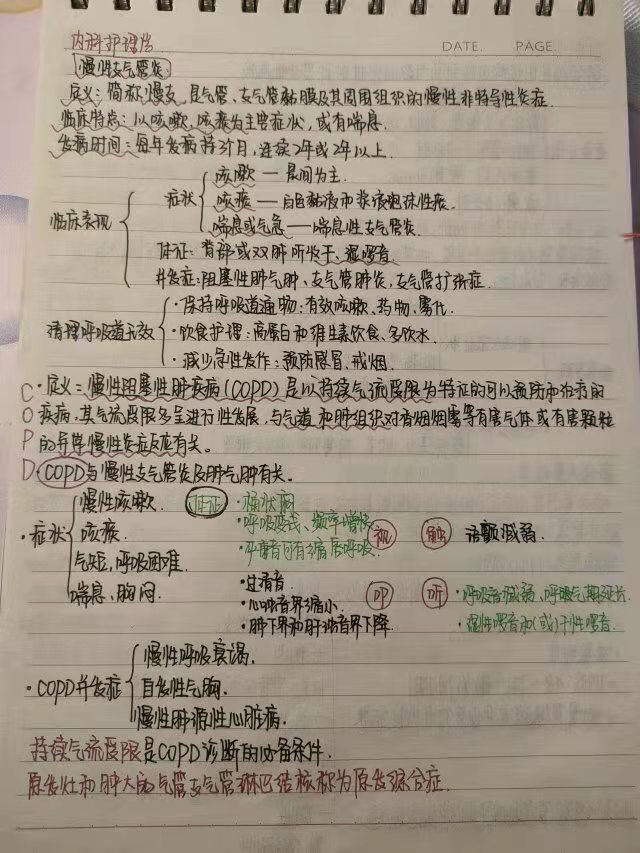 内科护理学
DATE. PAGE.
慢性支气管炎:
定义:简称慢支,是气管、支气管黏膜及其周围组织的慢性非特异性炎症.
临床特点:以咳嗽,咳痰为主要症状,或有喘息.
发病时间:每年发病持3个月,连续2年或2年以上.
临床表现
症状
咳嗽—晨间为主.
咳痰—白色黏液而浆液泡沫性痰.
喘息或气急—喘息性支气管炎.
体征:背部或双肺所收干、湿啰音.
并发症:阻塞性肺气肿、支气管肺炎,支气管扩张症.
清理呼吸道无效
·保持呼吸道通物:有效咳嗽、药物、雾化.
·饮食护理:高蛋白和维生素饮食、多饮水.
·减少急性发作:预防感冒,戒烟.
COPD
·定义:慢性阻塞性肺疾病(COPD)是以持续气流受限为特征的可以预防和治疗的
疾病,其气流受限多呈进行性发展,与气道和肺组织对香烟烟雾等有害气体或有害颗粒
的异常慢性炎症反应有关。
COPD与慢性支气管炎及肺气肿有关。
·症状
慢性咳嗽.
咳痰.
气短,呼吸困难.
喘息、胸闷.
体征
视
·桶状胸
·呼吸变浅、频率增快
·严重者可有缩唇呼吸.
触 语颤减弱.
叩
·过清音.
·心浊音界缩小.
·肺下界和肝浊音界下降.
听
·呼吸音减弱、呼气期延长.
·湿性啰音和(或)干性啰音.
·COPD并发症
慢性呼吸衰竭.
自发性气胸.
慢性肺源性心脏病.
持续气流受限是COPD诊断的必备条件.
原发灶和肿大的气管支气管淋巴结核称为原发综合症.